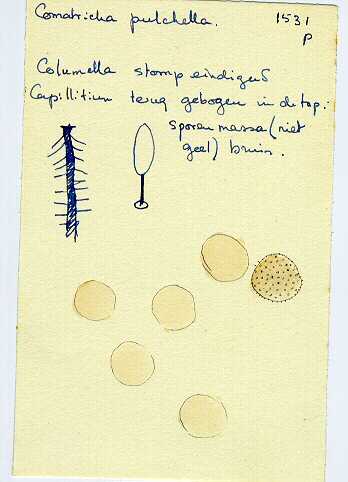 Comatricha pulchella.
1531
P
Columella stomp eindigend
Capillitium terug gebogen in de top.
sporenmassa (niet
geel) bruin.